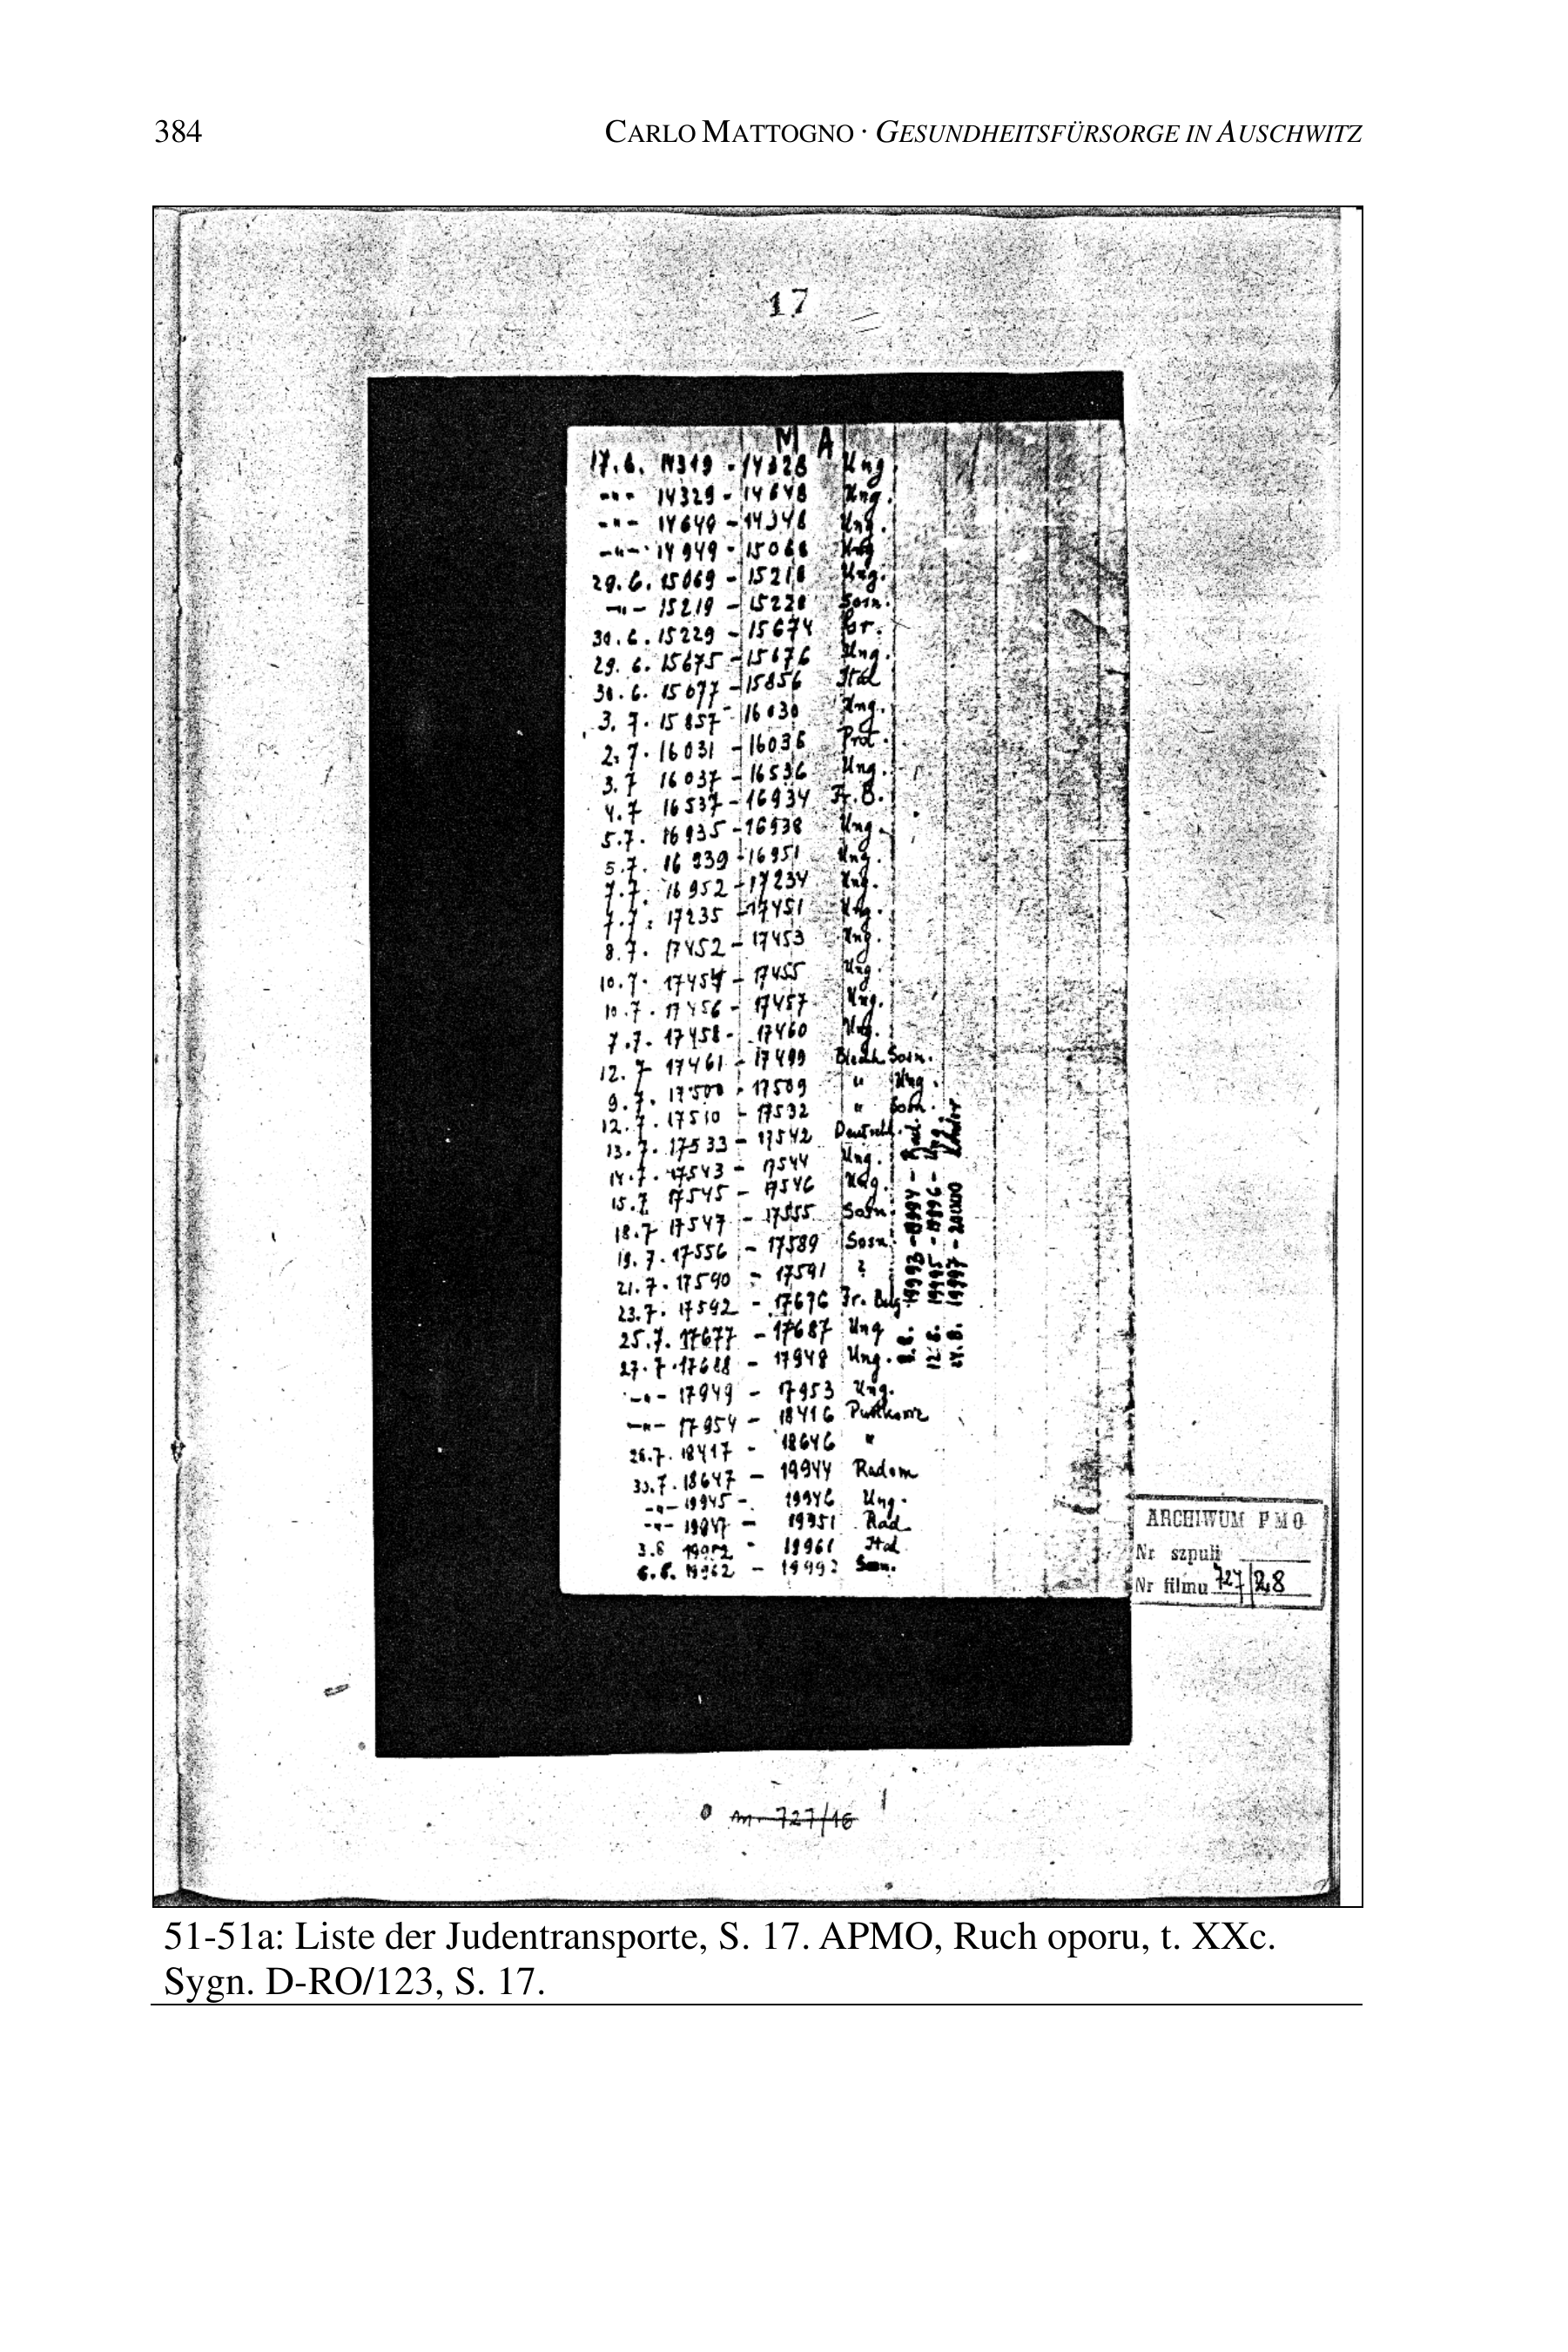 384 CARLO MATTOGNO · GESUNDHEITSFÜRSORGE IN AUSCHWITZ
17
M A
17.6. 14319 - 14328 Ung.
-"- 14329 - 14648 Ung.
-"- 14649 - 14948 Ung.
-"- 14949 - 15068 Ung
29.6. 15069 - 15218 Ung.
-"- 15219 - 15228 Sosn.
30.6. 15229 - 15674
29.6. 15675 - 15676 Ung.
30.6. 15677 - 15856 Ital
3.7. 15857 - 16030 Ung.
2.7. 16031 - 16036 Prot.
3.7 16037 - 16536 Ung.
4.7 16537 - 16934
5.7. 16935 - 16938 Ung.
5.7. 16939 - 16951 Ung.
7.7. 16952 - 17234 Ung.
7.7. 17235 - 17451 Ung.
8.7. 17452 - 17453 Ung.
10.7. 17454 - 17455 Ung.
10.7. 17456 - 17457 Ung.
7.7. 17458 - 17460 Ung.
12.7 17461 - 17499 Blechh. Sosn.
9.7. 17500 - 17509 " Ung.
12.7. 17510 - 17532 " Sosn.
13.7. 17533 - 17542 Deutschl.
14.7. 17543 - 17544 Ung.
15.7 17545 - 17546 Ung.
18.7 17547 - 17555 Sosn.
19.7. 17556 - 17589 Sosn.
21.7. 17590 - 17591 ?
23.7. 17592 - 17676 Fr. Belg
25.7. 17677 - 17687 Ung
27.7. 17688 - 17948 Ung.
-"- 17949 - 17953 Ung.
-"- 17954 - 18416
28.7. 18417 - 18646 "
30.7. 18647 - 19944 Radom
-"- 19945 - 19946 Ung.
-"- 19947 - 19951 Rad.
3.8 19952 - 19961 Ital
6.8. 19962 - 19992 Sosn.
19993 - 19994 - Rad.
12.8. 19995 - 19996 - Ung.
24.8. 19997 - 20000
ARCHIWUM PMO
Nr szpuli
Nr filmu 727/28
727/16
51-51a: Liste der Judentransporte, S. 17. APMO, Ruch oporu, t. XXc.
Sygn. D-RO/123, S. 17.